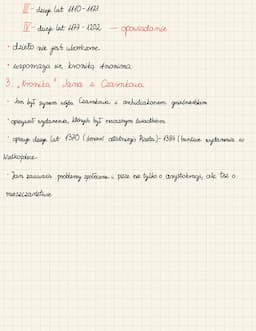 III - dzieje lat 1110-1173
IV - dzieje lat 1177-1202 — opowiadanie
• dzieło nie jest ukończone
• wspomaga się kroniką Anonima
3. "Kronika" Jana z Czarnkowa
• Jan był synem wójta Czarnkowa i archidiakonem gnieźnieńskim
• opisywał wydarzenia, których był naocznym świadkiem
• opisuje dzieje lat 1370 (śmierć ostatniego Piasta) - 1384 (burzliwe wydarzenia w
Wielkopolsce
• Jan zauważa problemy społeczne i pisze nie tylko o arystokracji, ale też o
mieszczaństwie